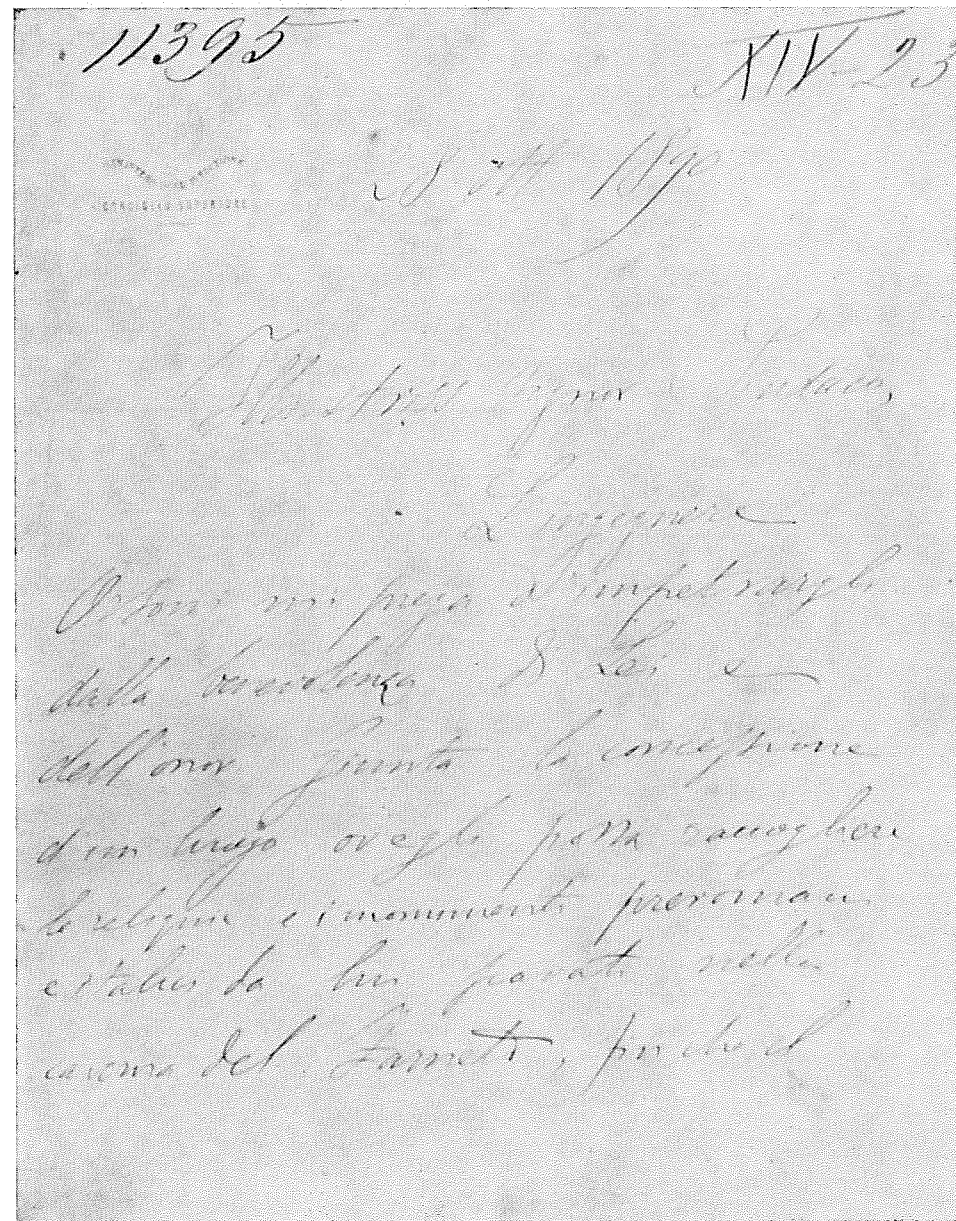 11395
XIV 23
8 Ott 1890
Illustriss Signor Sindaco,
L'ingegnere
Orsoni mi prega d'impetrargli
dalla benevolenza di Lei e
dell'onor Giunta la concessione
d'un luogo ov'egli possa raccogliere
le reliquie e i monumenti preromani
e italici da lui trovati nella
caverna del Farneto, finché il